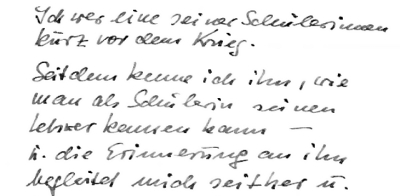 Ich war eine seiner Schülerinnen
kurz vor dem Krieg.
Seitdem kenne ich ihn, wie
man als Schülerin seinen
Lehrer kennen kann —
u. die Erinnerung an ihn
begleitet mich seither u.